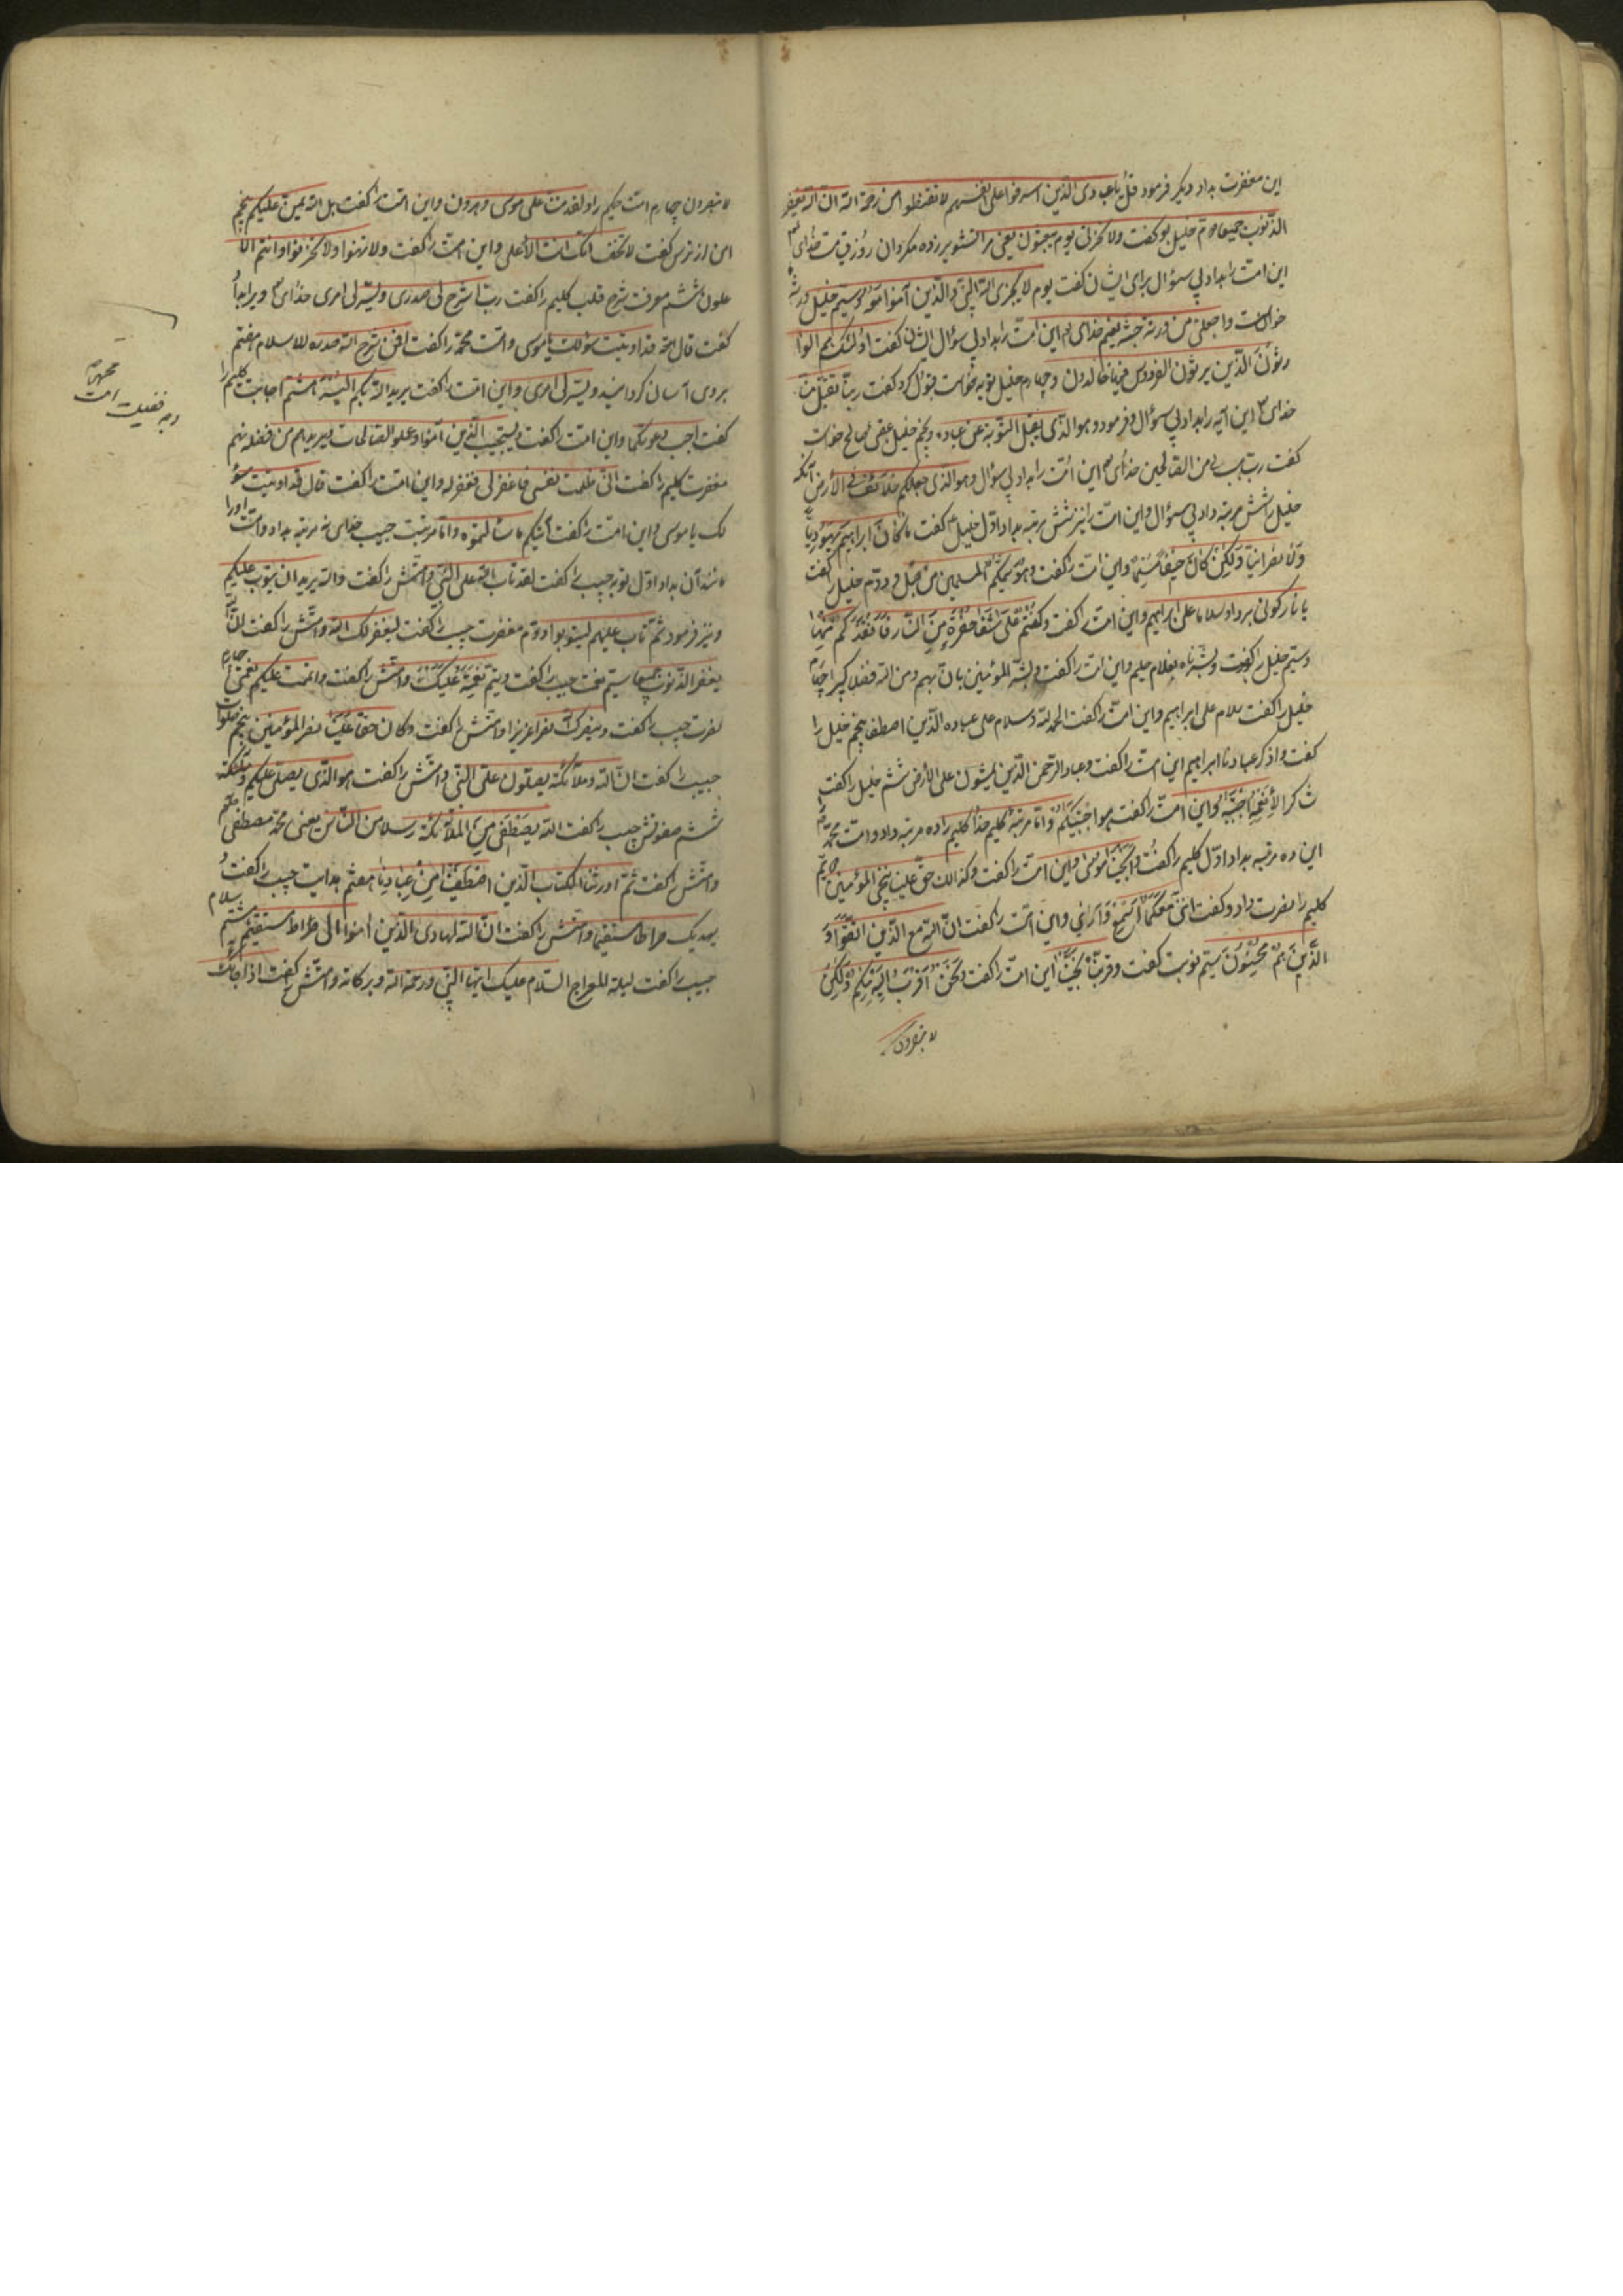 این مغفرت بداد و دیگر فرمود قل یا عبادی الذین اسرفوا علی انفسهم لا تقنطوا من رحمة الله ان الله یغفر
الذنوب جمیعا دوم خلیل بوکفت ولا تخزنی یوم یبعثون یعنی مرا تشویر زده مکردان روز قیامت خدای
این امت را بداد بی سؤال برای ایشان کفت یوم لا یخزی الله النبی والذین آمنوا معه وسیم خلیل ورثه
خواست واجعلنی من ورثة جنة نعیم خدای این امت را بداد بی سؤال ایشان کفت اولئک هم الوا
رثون الذین یرثون الفردوس هم فیها خالدون وچهارم خلیل توبه خواست قبول کرد کفت ربنا تقبل منا
خدای این آیه را بداد بی سؤال وفرمود وهو الذی یقبل التوبة عن عباده وپنجم خلیل عقبی صالح خواست
کفت رب هب لی من الصالحین خدای این امت را بداد بی سؤال وهو الذی جعلکم خلائف فی الأرض آنکه
خلیل را شش مرتبه داد بی سؤال واین امت را نیز شش مرتبه بداد اول خلیل کفت ما کان ابراهیم یهودیا
ولا نصرانیا ولکن کان حنیفا مسلما واین امت را کفت وهو سمیکم المسلمین من قبل ودوم خلیل را کفت
یا نار کونی بردا وسلاما علی ابراهیم واین امت را کفت وکنتم علی شفا حفرة من النار فأنقذکم منها
وسیم خلیل را کفت وبشرناه بغلام حلیم واین امت را کفت وبشر المؤمنین بان لهم من الله فضلا کبیرا چهارم
خلیل را کفت سلام علی ابراهیم واین امت را کفت الحمد لله وسلام علی عباده الذین اصطفی پنجم خلیل را
کفت واذکر عبادنا ابراهیم این امت را کفت وعباد الرحمن الذین یمشون علی الأرض ششم خلیل را کفت
شاکرا لأنعمه اجتبیه واین امت را کفت هو اجتبیکم واما مرتبه کلیم خدا کلیم را ده مرتبه داد وامت محمد را
این ده مرتبه بداد اول کلیم را کفت وانجینا موسی واین امت را کفت وکذالک حق علینا ننجی المؤمنین دویم
کلیم را نصرت داد وکفت اننی معکما اسمع واری واین امت را کفت ان الله مع الذین اتقوا و
الذین هم محسنون سیم نوبت کفت وقربناه نجیا این امت را کفت ونحن اقرب الیه منکم ولکن
لا تبصرون
لا تبصرون چهارم امت کلیم را ولقد مننا علی موسی وهرون واین امت را کفت بل الله یمن علیکم پنجم
امن از ترس کفت لا تخف انک انت الأعلی واین امت را کفت ولا تهنوا ولا تحزنوا وانتم الا
علون ششم معرفت شرح قلب کلیم را کفت رب اشرح لی صدری ویسر لی امری خدای ویرا ابتدا
کفت قال قد اوتیت سؤلک یا موسی وامت محمد را کفت افمن شرح الله صدره للاسلام هفتم
بروی آسان کردانید ویسر لی امری واین امت را کفت یرید الله بکم الیسر هشتم اجابت کلیم را
کفت اجیب دعوتکما واین امت را کفت ویستجیب الذین آمنوا وعملوا الصالحات ویزیدهم من فضله نهم
مغفرت کلیم را کفت انی ظلمت نفسی فاغفر لی فغفر له واین امت را کفت قال قد اوتیت سؤ
لک یا موسی واین امت را کفت آتیکم ما سألتموه واما مرتبت حبیب خدای نه مرتبه بداد وامت اورا
مانند آن بداد اول توبه حبیب را کفت لقد تاب الله علی النبی وامتش را کفت والله یرید ان یتوب علیکم
ونیز فرمود ثم تاب علیهم لیتوبوا ودوم مغفرت حبیب را کفت لیغفر لک الله وامتش را کفت ان الله
یغفر الذنوب جمیعا سیم نعمت حبیب را کفت ویتم نعمته علیک وامتش را کفت واتممت علیکم نعمتی چهارم
نصرت حبیب را کفت وینصرک الله نصرا عزیزا وامتش را کفت وکان حقا علینا نصر المؤمنین پنجم صلوات
حبیب را کفت ان الله وملائکته یصلون علی النبی وامتش را کفت هو الذی یصلی علیکم وملئکته
ششم صفوتش حبیب را کفت الله یصطفی من الملائکة رسلا من الناس یعنی محمد مصطفی
وامتش را کفت ثم اورثنا الکتاب الذین اصطفینا من عبادنا هفتم هدایت حبیب را کفت و
یهدیک صراطا مستقیما وامتش را کفت ان الله لهادی الذین امنوا الی صراط مستقیم هشتم سلام
حبیب را کفت لیلة المعراج السلام علیک ایها النبی ورحمة الله وبرکاته وامتش را کفت اذا جاءک
وجه فضیلت امت
محمد